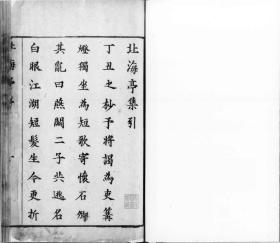 北海亭集引
丁丑之杪予將謁為吏篝
燈獨坐為短歌寄懷石卿
其亂曰燕關二子共逃名
白眼江湖短髮生今更折